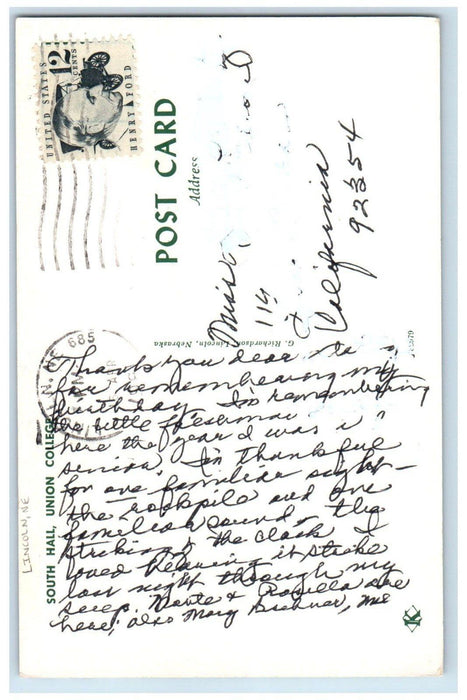 UNITED STATES
12 CENTS
HENRY FORD
POST CARD
Address
Miss
114
California
92354
G. Richardson, Lincoln, Nebraska
685
SOUTH HALL, UNION COLLEGE
LINCOLN, NE
Thank you dear
for remembering my
birthday. I'm remembering
the little freshman
here the year I was a
senior. I'm thankful
for one familiar sight -
the rockpile and one
familiar sound - the
striking of the clock. I
loved hearing it strike
last night through my
sleep. & are
here; also Mary
K